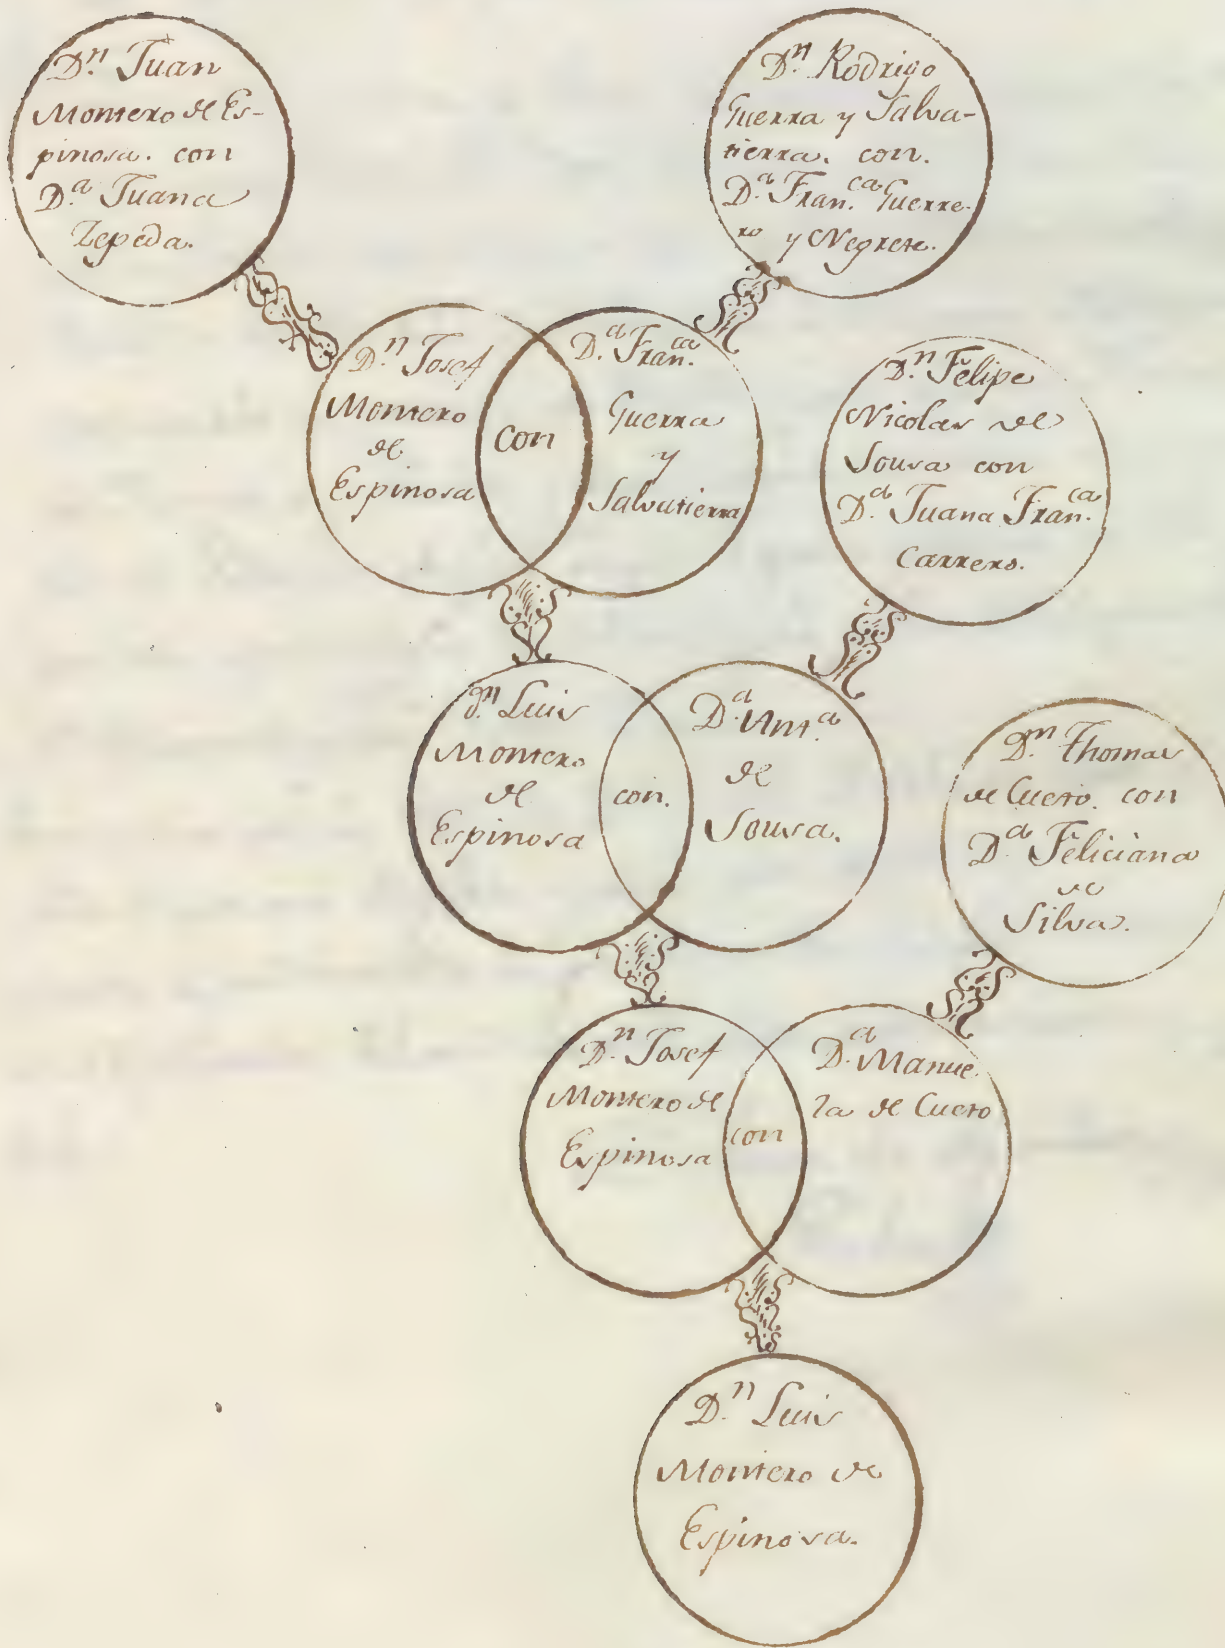 D.ⁿ Juan
Montero de Es-
pinosa. con
D.ª Juana
Zepeda.
D.ⁿ Rodrigo
Guerra y Salva-
tierra. con.
D.ª Fran.ca Guerre-
ro y Negrete.
D.ⁿ Josef
Montero
de
Espinosa
con
D.ª Fran.ca
Guerra
y
Salvatierra
D.ⁿ Felipe
Nicolas de
Sousa con
D.ª Juana Fran.ca
Carrero.
D.ⁿ Luis
Montero
de
Espinosa
con.
D.ª Ant.ª
de
Sousa.
D.ⁿ Thomas
de Cueto. con
D.ª Feliciana
de
Silva.
D.ⁿ Josef
Montero de
Espinosa
con
D.ª Manue-
la de Cueto
D.ⁿ Luis
Montero de
Espinosa.